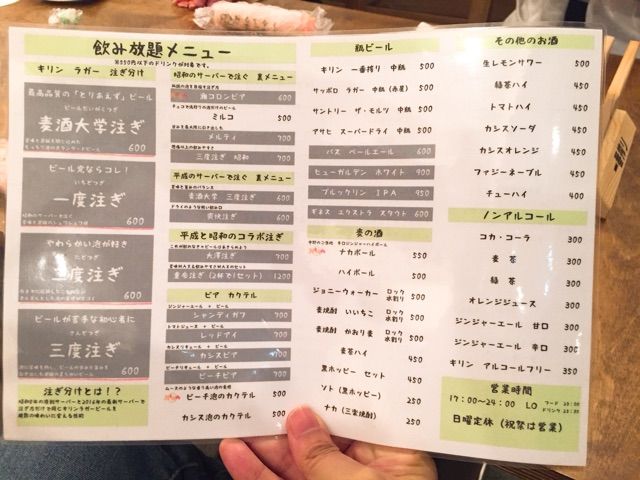 飲み放題メニュー
※550円以下のドリンクが対象です。
キリン ラガー 注ぎ分け
最高品質の「とりあえず」ビール
ビールだいがくつぎ
麦酒大学注ぎ
600
ビール党ならコレ!
いちどつぎ
一度注ぎ
昭和のサーバーで注ぐ
600
やわらかい泡が好き
にどつぎ
二度注ぎ
600
ビールが苦手な初心者に
さんどつぎ
三度注ぎ
600
注ぎ分けとは!?
昭和のサーバーで注ぐ 裏メニュー
海コロンビア 600
チェコで流行りの泡だけのビール
ミルコ 500
メルティ 700
三度注ぎ 昭和 700
平成のサーバーで注ぐ 裏メニュー
麦酒大学 三度注ぎ 600
爽快注ぎ 600
平成と昭和のコラボ注ぎ
大澤注ぎ 700
重合注ぎ(2杯で1セット) 1200
ビア カクテル
ジンジャーエール + ビール
シャンディガフ 700
トマトジュース + ビール
レッドアイ 700
カシスリキュール + ビール
カシスビア 700
ピーチリキュール + ビール
ピーチビア 700
ピーチ泡のカクテル 500
カシス泡のカクテル 500
瓶ビール
キリン 一番搾り 中瓶 500
サッポロ ラガー 中瓶(赤星) 500
サントリー ザ・モルツ 中瓶 500
アサヒ スーパードライ 中瓶 500
バス ペールエール 600
ヒューガルデン ホワイト 900
ブルックリン IPA 950
ギネス エクストラ スタウト 600
麦の酒
ナカボール 550
ハイボール 450
ジョニーウォーカー ロック 水割り 500
麦焼酎 いいちこ ロック 水割り 450
麦焼酎 かおり麦 ロック 水割り 500
麦茶ハイ 450
黒ホッピー セット 450
ソト(黒ホッピー) 250
ナカ(三楽焼酎) 250
その他のお酒
生レモンサワー 500
緑茶ハイ 400
トマトハイ 450
カシスソーダ 450
カシスオレンジ 450
ファジーネーブル 450
チューハイ 400
ノンアルコール
コカ・コーラ 300
麦茶 300
緑茶 300
オレンジジュース 300
ジンジャーエール 甘口 300
ジンジャーエール 辛口 300
キリン アルコールフリー 350
営業時間
17:00~24:00 LO フード 23:00 ドリンク 23:30
日曜定休(祝祭は営業)